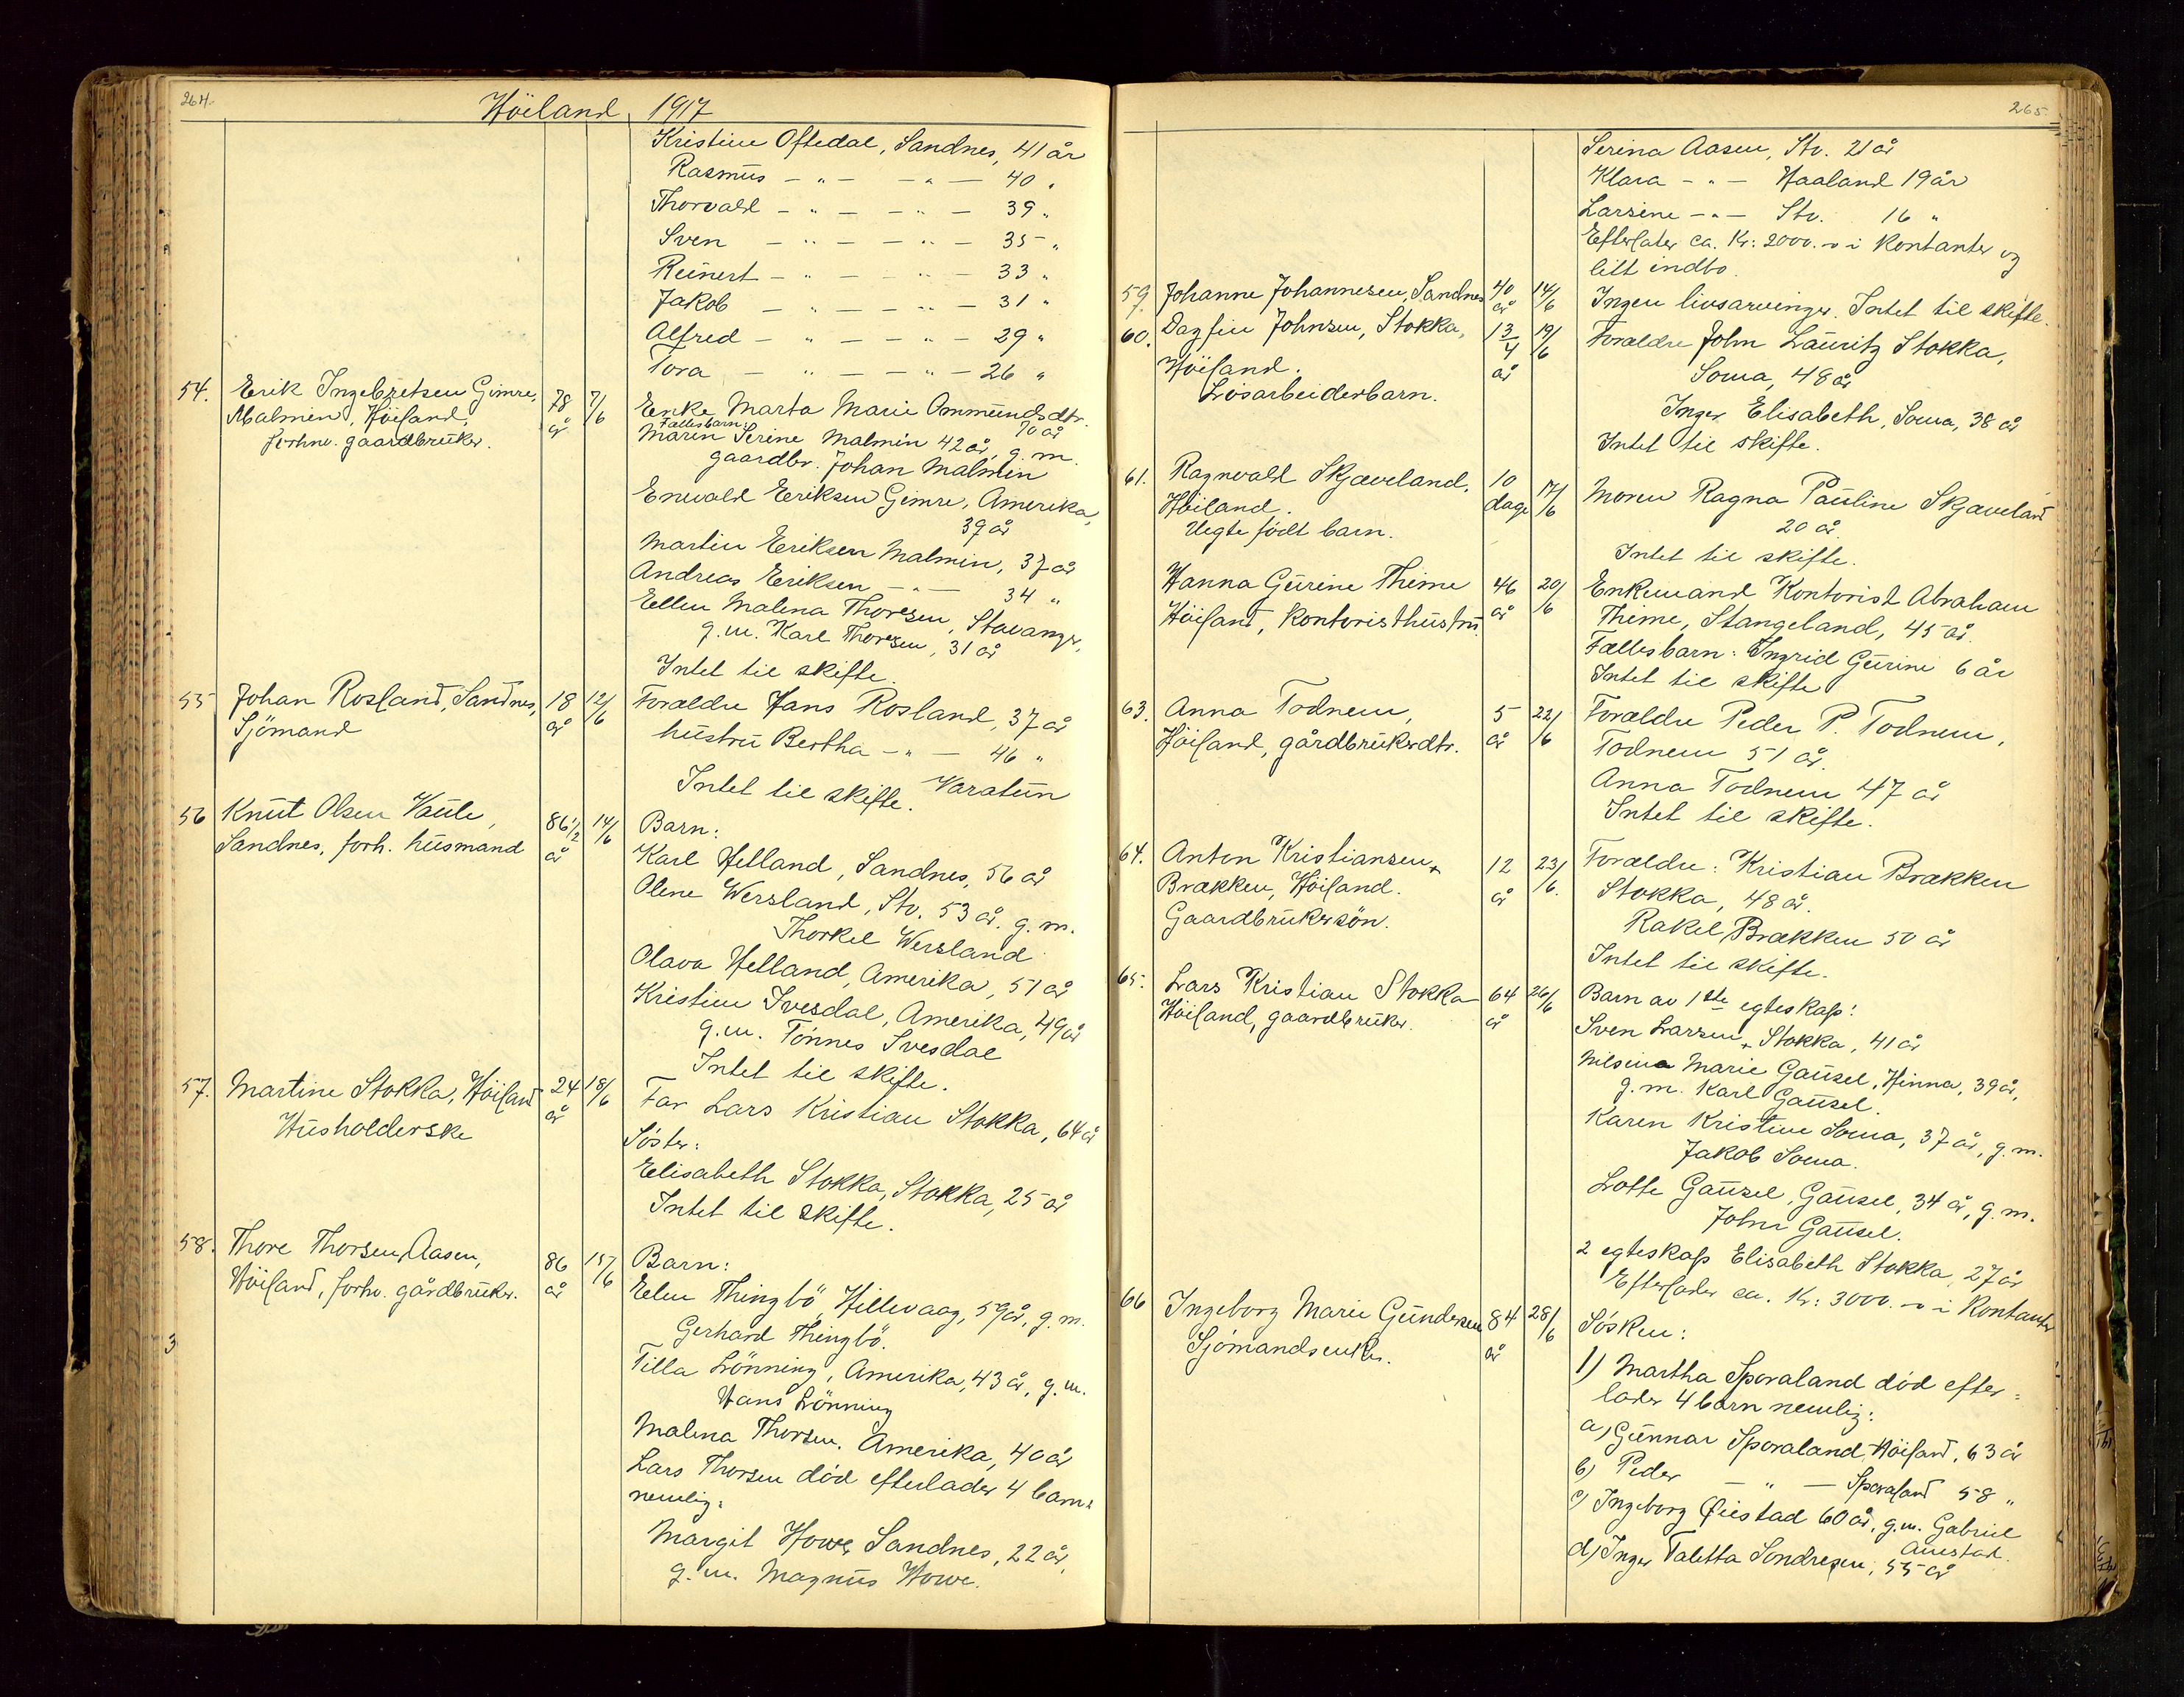 264.
Höiland 1917
Kristine Oftedal, Sandnes, 41 år
Rasmus — " — — " — 40 "
Thorvald — " — — " — 39 "
Sven — " — — " — 35 "
Reinert — " — — " — 33 "
Jakob — " — — " — 31 "
Alfred — " — — " — 29 "
Tora — " — — " — 26 "
54. Erik Ingebretsen Gimre, 78 7/6 Enke Marta Marie Ommundsdtr.
Malmin, Höiland, år 70 år
forhnv. gaardbruker. Fællesbarn:
Maren Serine Malmin 42 år, g. m.
gaardbr. Johan Malmin
Enevald Eriksen Gimre, Amerika,
39 år
Martin Eriksen Malmin, 37 år
Andreas Eriksen — " — 34 "
Ellen Malena Thoresen, Stavanger,
g. m. Karl Thorsen, 31 år
Intet til skifte.
55 Johan Rosland, Sandnes, 18 12/6 Forældre Hans Rosland, 37 år
Sjömand år hustru Bertha — " — 46 "
Varatun
Intet til skifte.
56 Knut Olsen Vaule, 86 1/2 14/6 Barn:
Sandnes, forh. husmand år Karl Helland, Sandnes, 56 år
Olene Wersland, Stv. 53 år. g. m.
Thorkel Wersland
Olava Helland, Amerika, 51 år
Kristine Ivesdal, Amerika, 49 år
g. m. Tönnes Ivesdal
Intet til skifte.
57. Martine Stokka, Höiland 24 18/6 Far Lars Kristian Stokka, 64 år
Husholderske år Söster:
Elisabeth Stokka, Stokka, 25 år
Intet til skifte.
58. Thore Thorsen Aasen, 86 15/6 Barn:
Höiland, forhv. gårdbruker. år Elen Thingbö, Hillevaag, 59 år, g. m.
Gerhard Thingbö.
3
Tilla Lönning, Amerika, 43 år, g. m.
Hans Lönning
Malena Thorsen, Amerika, 40 år
Lars Thorsen död efterlader 4 barn:
nemlig:
Margit Howe, Sandnes, 22 år,
g. m. Magnus Howe.
265
Serina Aasen, Stv. 21 år
Klara — " — Haaland 19 år
Larsine — " — Stv. 16 "
Efterlater ca. Kr: 2000.- i kontanter og
litt indbo.
59. Johanne Johannesen, Sandnes 40 år 14/6 Ingen livsarvinger. Intet til skifte.
60. Dagfin Johnsen, Stokka, 1 3/4 år 19/6 Forældre John Lauritz Stokka,
Höiland. Soma, 48 år
Lösarbeiderbarn. Inger Elisabeth, Soma, 38 år
Intet til skifte.
61. Ragnvald Skjæveland, 10 17/6 Moren Ragna Pauline Skjæveland
Höiland. dage 20 år.
Uegte födt barn. Intet til skifte.
Hanna Gurine Thime 46 20/6 Enkemand Kontorist Abraham
Höiland, kontoristhustru år Thime, Stangeland, 45 år.
Fællesbarn: Ingrid Gurine 6 år
Intet til skifte
63. Anna Todnem, 5 22/6 Forældre Peder P. Todnem,
Höiland, gårdbrukerdtr. år Todnem 51 år.
Anna Todnem 47 år
Intet til skifte.
64. Anton Kristiansen 12 23/6. Forældre: Kristian Brækken
Brækken, Höiland. år Stokka, 48 år.
Gaardbrukersön. Rakel Brækken 50 år
Intet til skifte.
65. Lars Kristian Stokka 64 26/6 Barn av 1ste egteskap:
Höiland, gaardbruker. år Sven Larsen, Stokka, 41 år
Nilsina Marie Gausel, Hinna, 39 år,
g. m. Karl Gausel.
Karen Kristine Soma, 37 år, g. m.
Jakob Soma.
Lotte Gausel, Gausel, 34 år, g. m.
John Gausel.
2 egteskap Elisabeth Stokka, 27 år
Efterlader ca. Kr: 3000.- i kontanter
66 Ingeborg Marie Gundersen 84 28/6 Sösken:
Sjömandsenke. år 1) Martha Sporaland död efter=
lader 4 barn nemlig:
a) Gunnar Sporaland, Höiland, 63 år
b) Peder — " — Sporaland 58 "
c) Ingeborg Øiestad 60 år, g. m. Gabriel
Auestad.
d) Inger Taletta Sondresen, 55 år